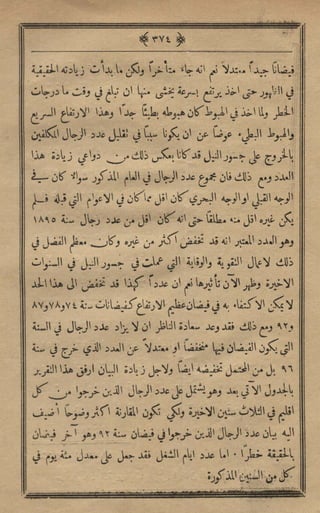 ٣٧٤
فيضانًا جيدًا معتدلاً نعم انه جاء متأخرًا ولكن ما بدأت زيادته الحقيقية
في الظهور حتى اخذ يرتفع بسرعة يخشى منها ان تبلغ في وقت ما درجات
الخطر ولما اخذ في الهبوط كان هبوطه بطيئًا جدًا وهذا الارتفاع السريع
والهبوط البطيء عوضًا عن ان يكونا سببًا في تقليل عدد الرجال المكلفين
بالخروج على جسور النيل قد كانا بعكس ذلك من دواعي زيادة هذا
العدد ومع ذلك فان مجموع عدد الرجال في العام المذكور سواء كان في
الوجه القبلي او الوجه البحري كان اقل مما كان في الاعوام التي قبله فلم
يكن غيره اقل منه مطلقًا حتى انه كان اقل من عدد رجال سنة ١٨٩٥
وهو العدد المعتبر انه قد تخفض اكثر من غيره وكان معظم الفضل في
ذلك لاعمال التقوية والوقاية التي عملت في جسور النيل في السنوات
الاخيرة وظهر الآن تأثيرها نعم ان عددًا كهذا قد تخفض الى هذا الحد
لا يمكن الاكتفاء به في فيضان عظيم الارتفاع كفيضانات سنة ٧٤ و٧٨ و٨٧
و٩٢ ومع ذلك فقد وعد سعادة الناظر ان لا يزاد عدد الرجال في السنة
التي يكون الفيضان فيها منخفضًا او معتدلاً عن العدد الذي خرج في سنة
٩٦ بل من المحتمل تخفيضه ايضًا ولاجل زيادة البيان ارفق هذا التقرير
بالجدول الآتي بعد وهو يشتمل على عدد الرجال الذين خرجوا من كل
اقليم في الثلاث سنين الاخيرة ولكي تكون المقارنة اكثر وضوحًا أضيف
اليه بيان عدد الرجال الذين خرجوا في فيضان سنة ٩٢ وهو آخر فيضان
بالحقيقة خطر اما عدد ايام الشغل فقد جعل على معدل مئة يوم في
كل من السنين المذكورة